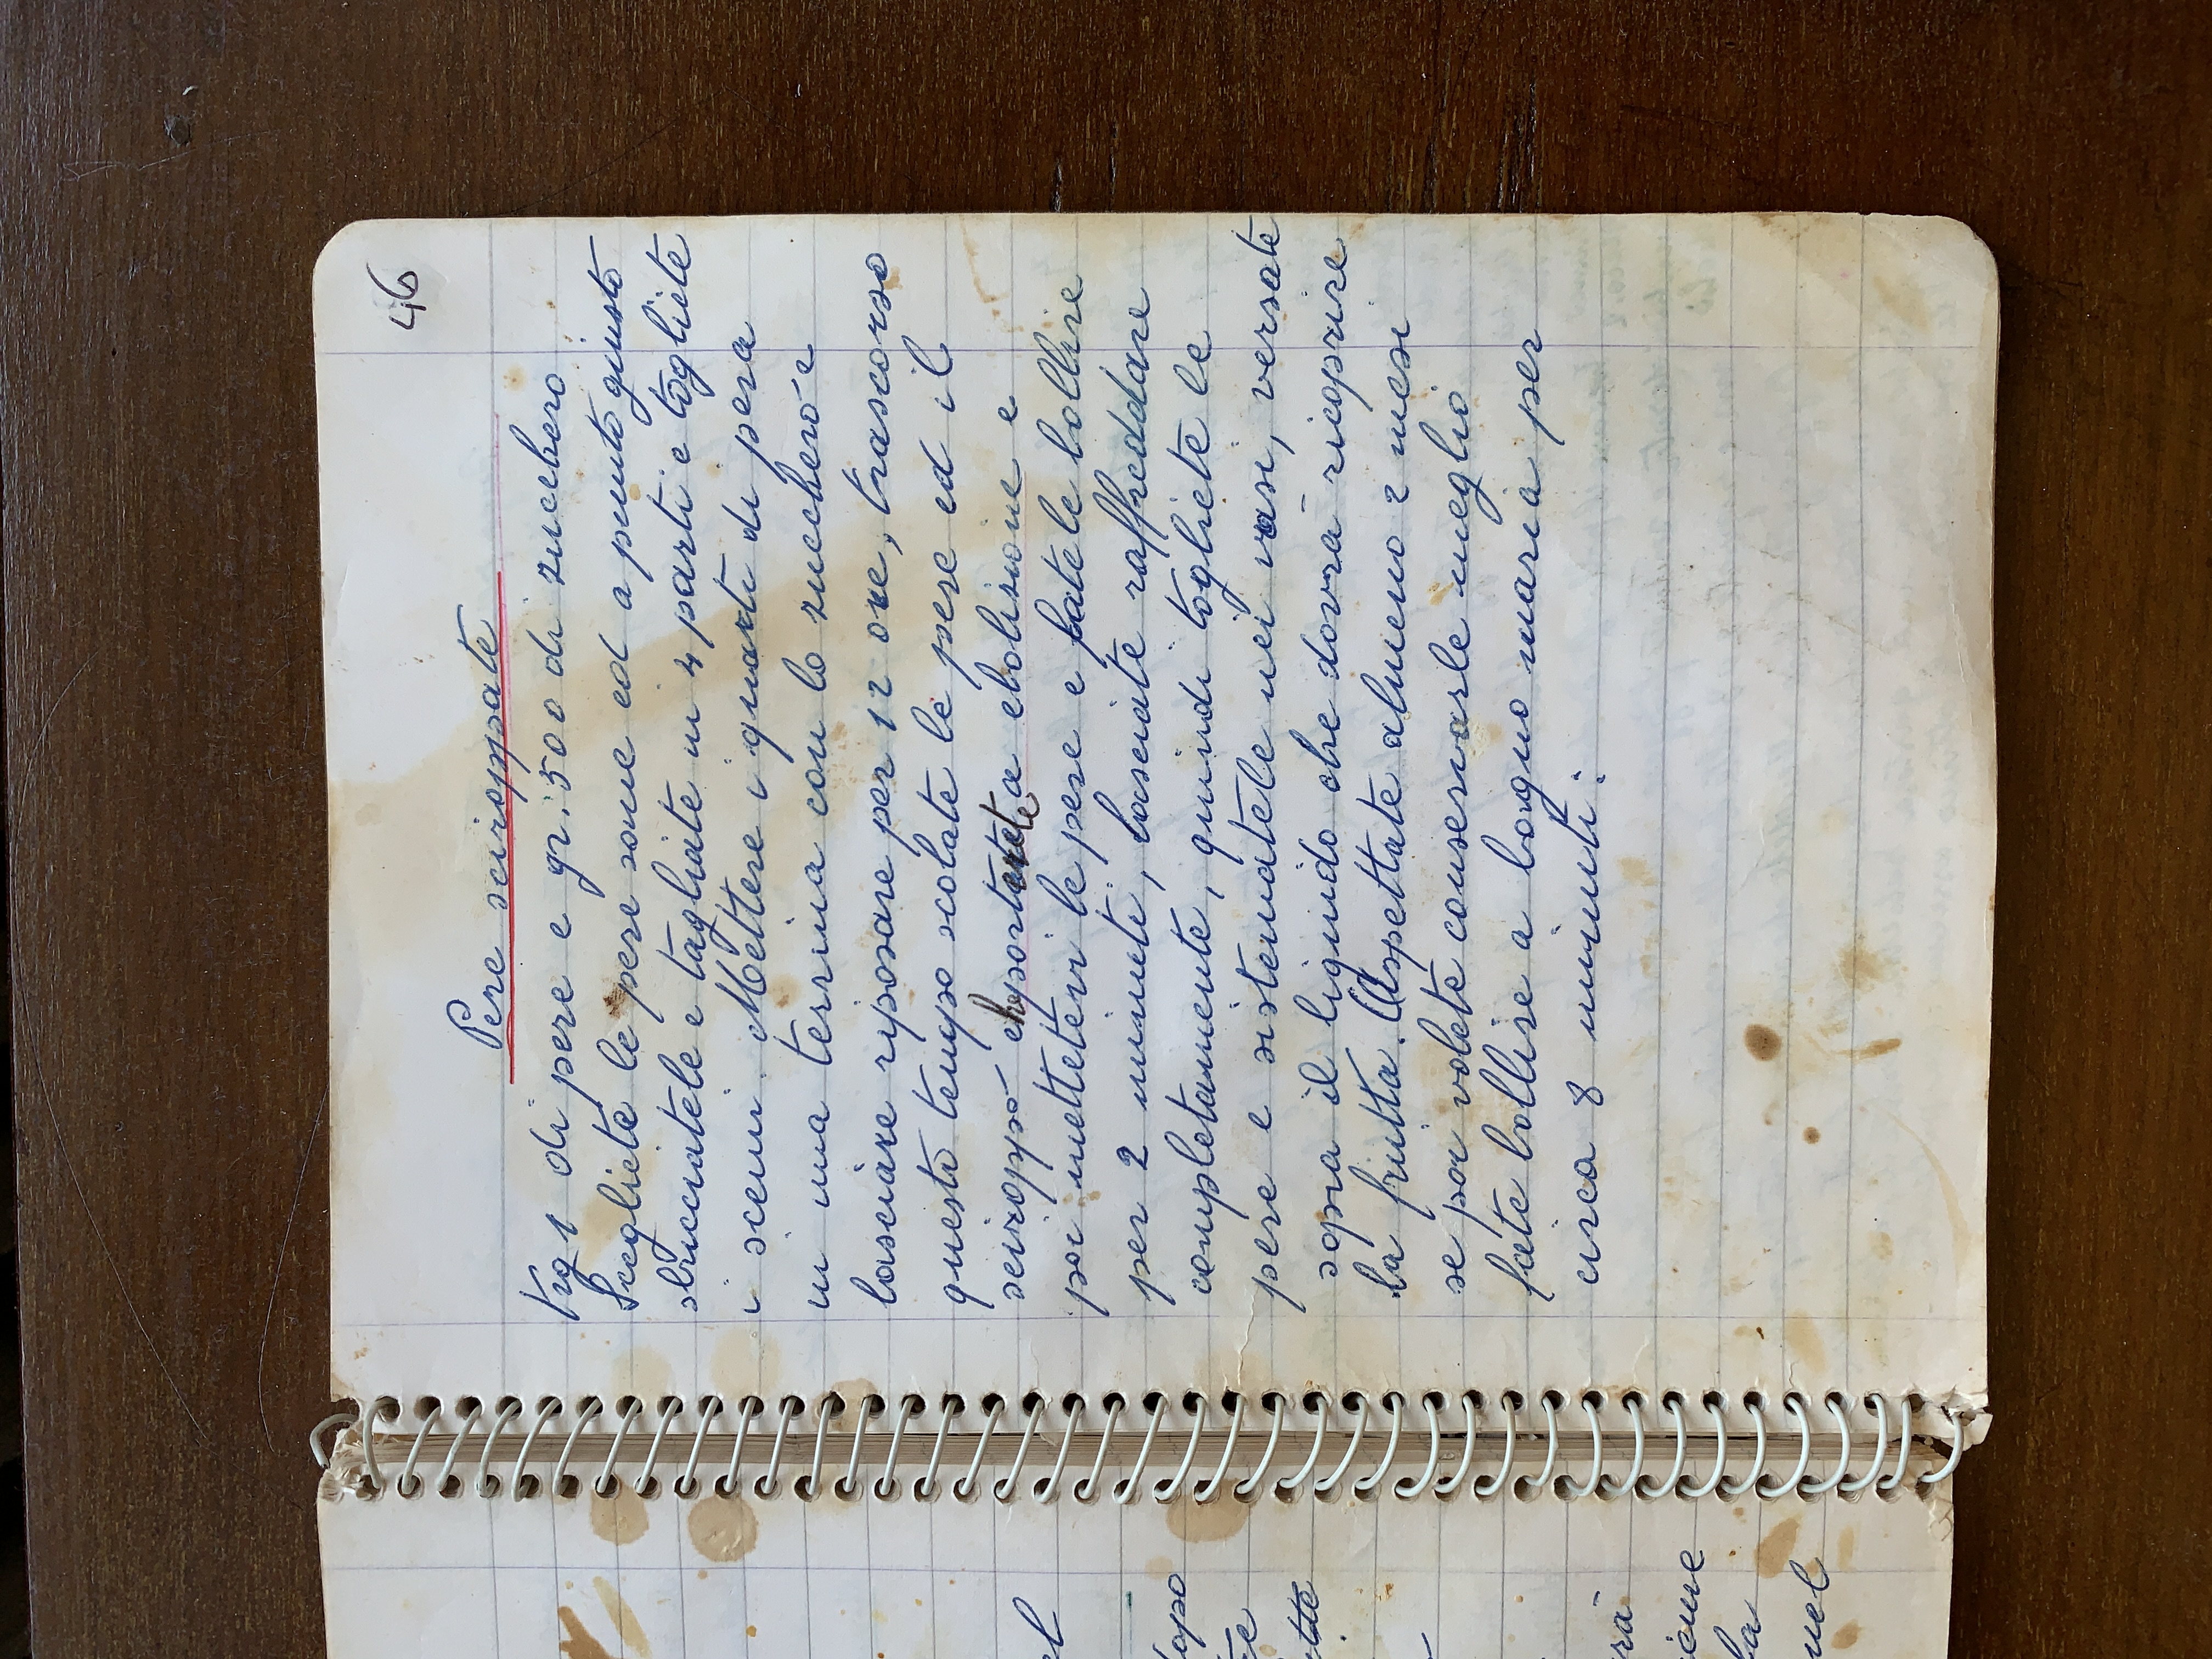 46
Pere sciroppate
Kg 1 di pere e gr. 500 di zucchero
Scegliete le pere sane ed a punto giusto
sbucciatele e tagliate in 4 parti e togliete
i scemi. Mettere i quarti di pera
in una terrina con lo zucchero e
lasciare riposare per 12 ore, trascorso
questo tempo scolate le pere ed il
sciroppo che porterete a ebolizione e
poi mettetevi le pere e fatele bollire
per 2 minuti, lasciate raffreddare
completamente, quindi togliete le
pere e sistematele nei vasi, versate
sopra il liquido che dovrà ricoprire
la frutta. Aspettate almeno 2 mesi
se poi volete conservarle meglio
fate bollire a bagno maria per
circa 8 minuti: